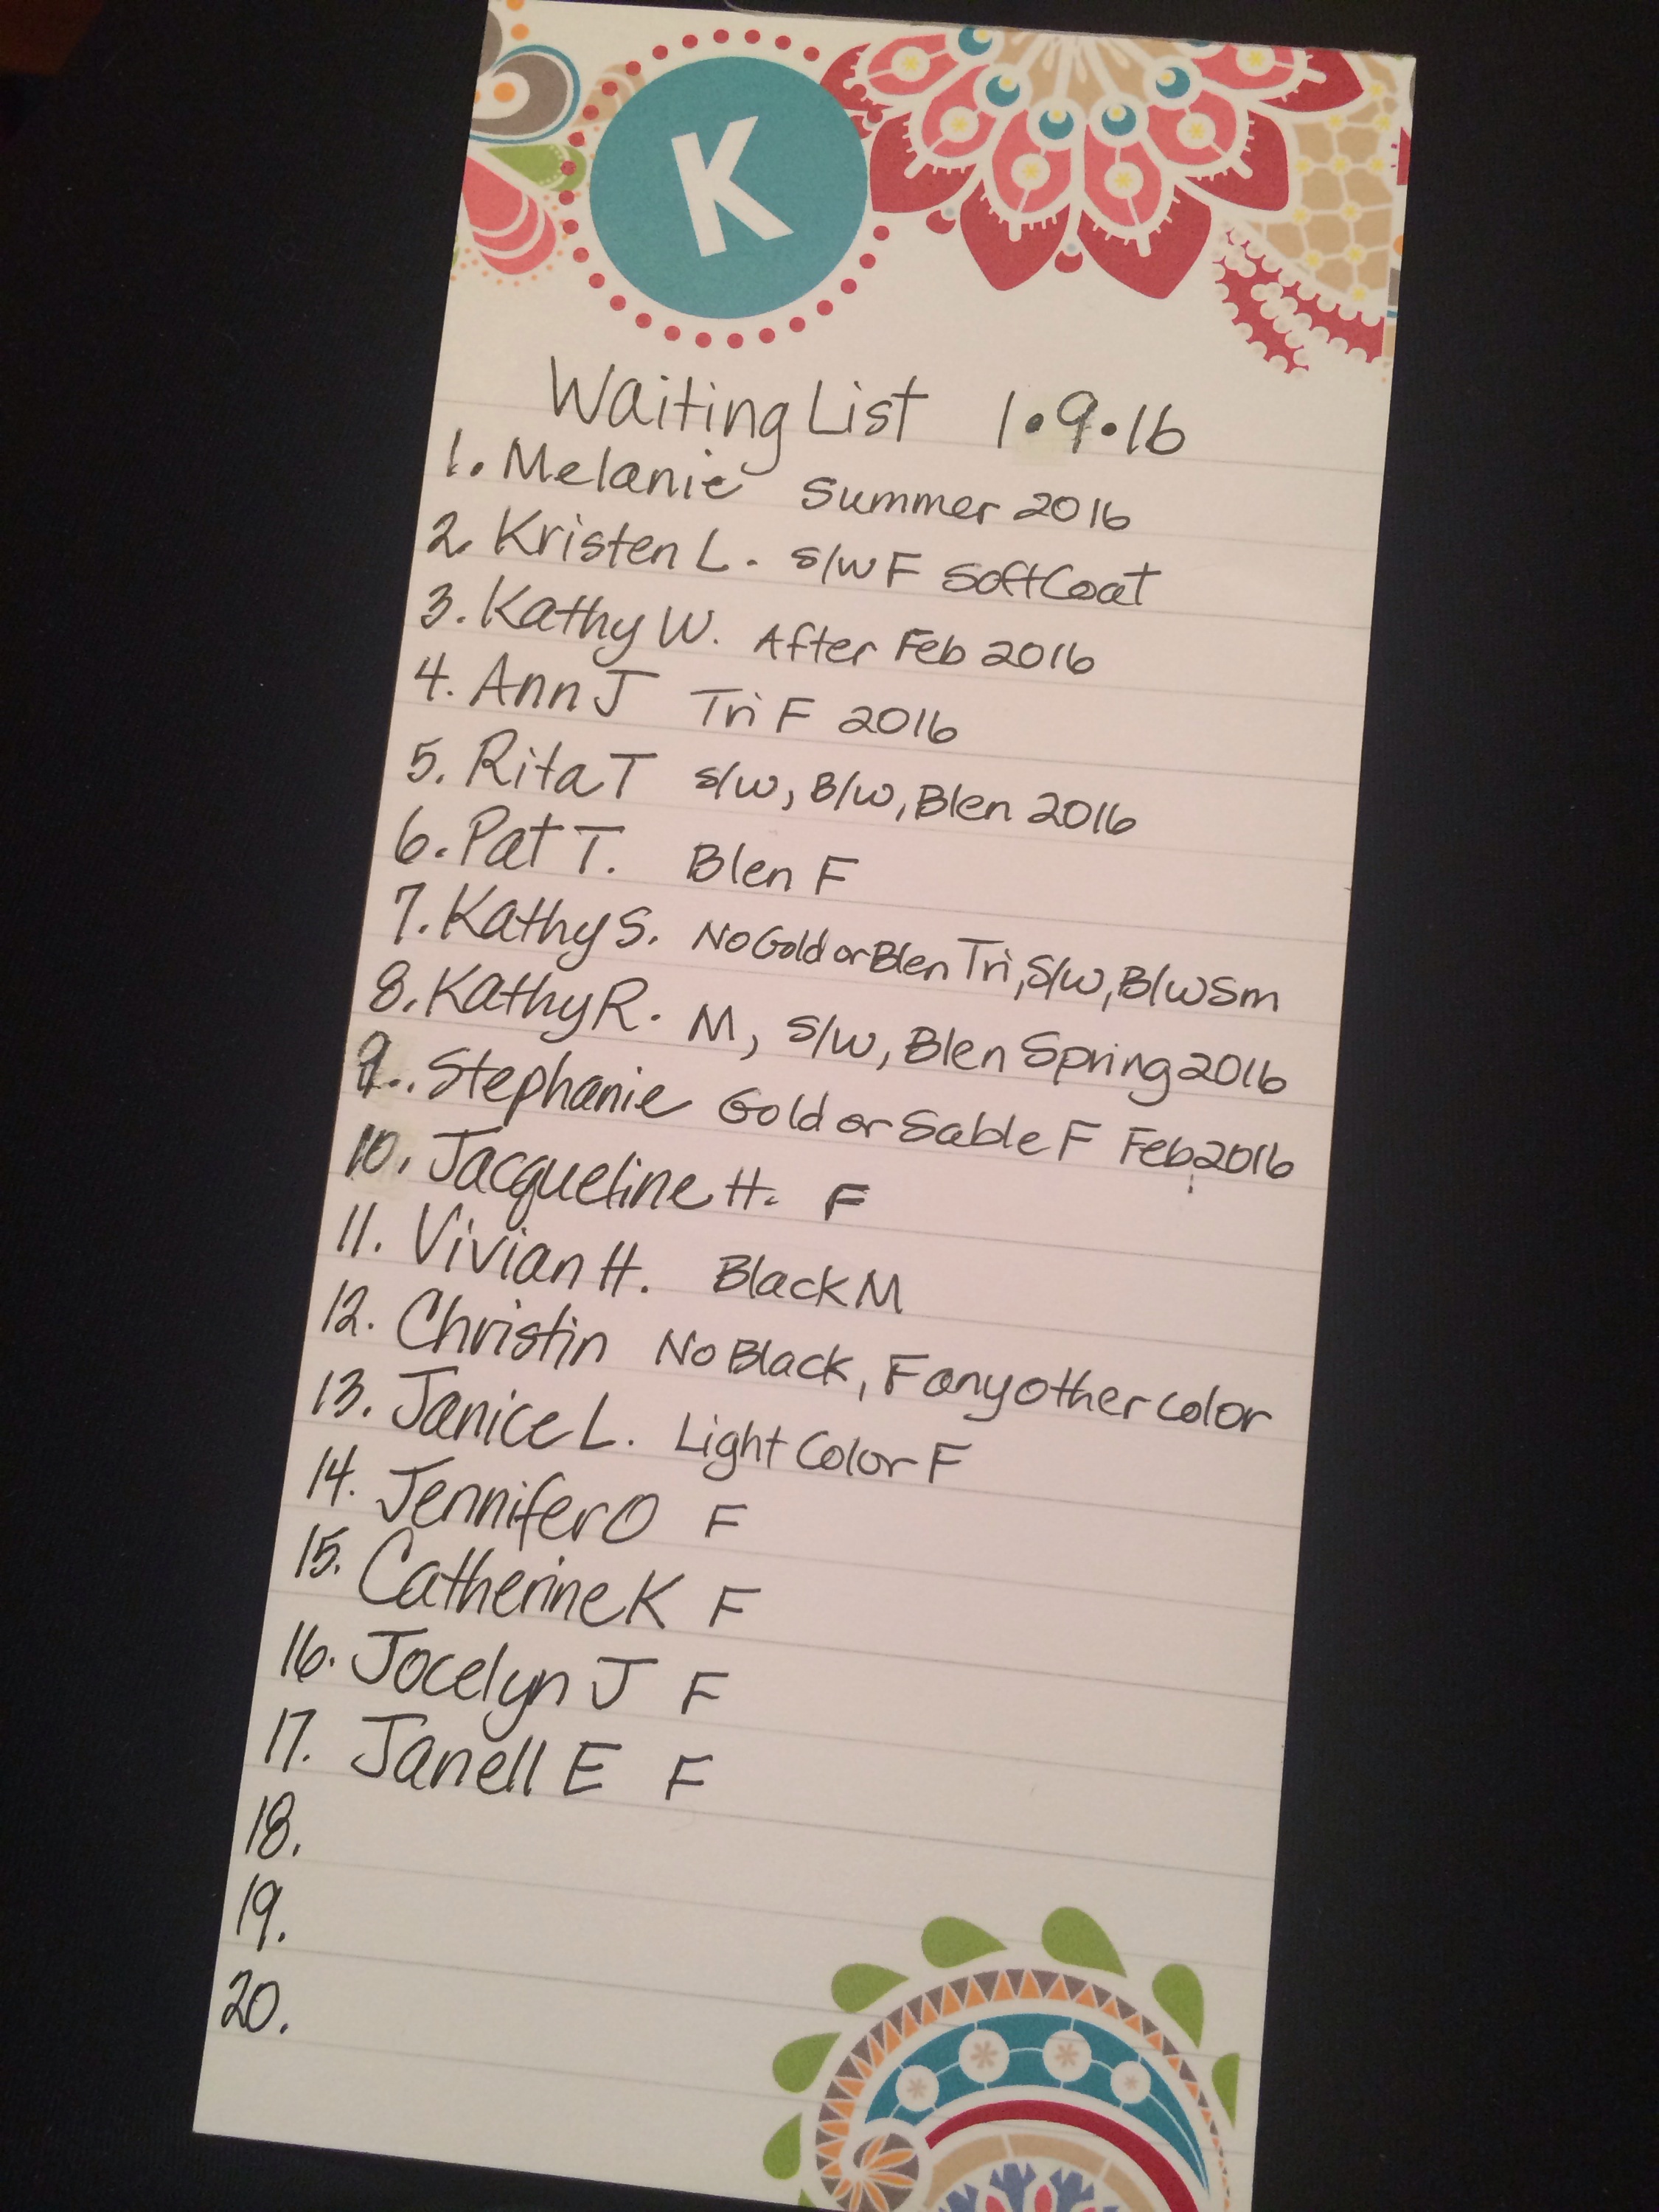 K
Waiting List 1.9.16
1. Melanie Summer 2016
2. Kristen L. S/W F Soft Coat
3. Kathy W. After Feb 2016
4. Ann J Tri F 2016
5. Rita T S/W, B/W, Blen 2016
6. Pat T. Blen F
7. Kathy S. No Gold or Blen Tri, S/W, B/W Sm
8. Kathy R. M, S/W, Blen Spring 2016
9. Stephanie Gold or Sable F Feb 2016
10. Jacqueline H. F
11. Vivian H. Black M
12. Christin No Black, F any other color
13. Janice L. Light Color F
14. Jennifer O F
15. Catherine K F
16. Jocelyn J F
17. Janell E F
18.
19.
20.